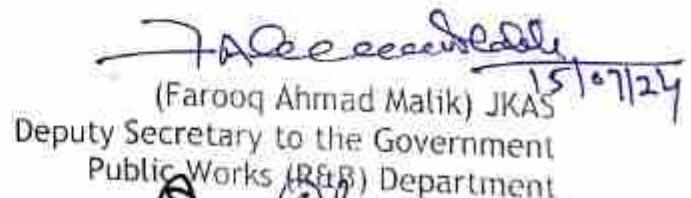 15/07/24
(Farooq Ahmad Malik) JKAS
Deputy Secretary to the Government
Public Works (R&B) Department